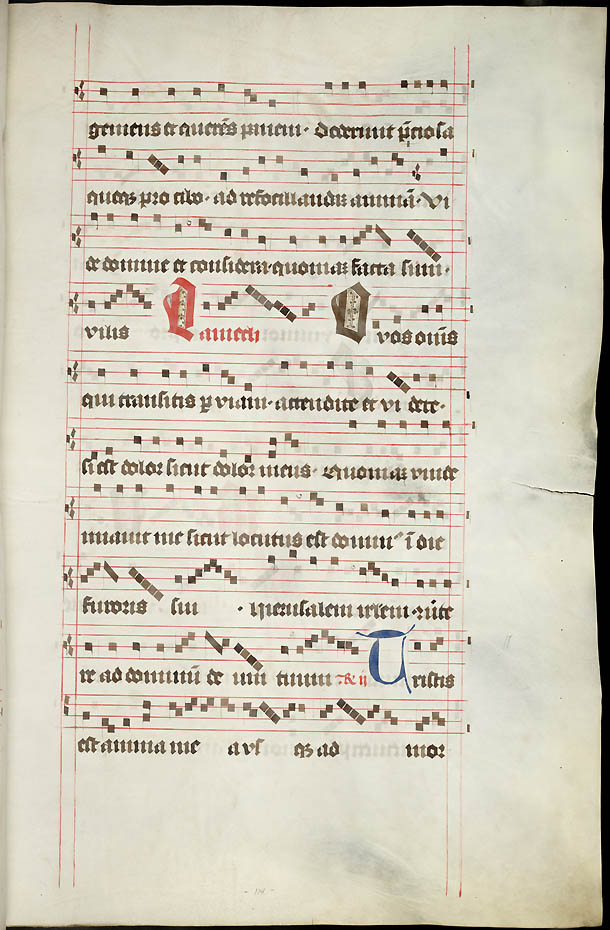 gemens et querēs panem · dederunt p̄ciosa
queqꝫ pro cibo · ad refocillandā animā · Vi
de domine et considera quoniaꝫ facta sum
vilis Lamech O vos om̄s
qui transitis ꝑ viam · attendite et vi dete ·
si est dolor sicut dolor meus · Quoniaꝫ vinde
miauit me sicut locutus est domin⁹ ī die
furoris sui · Hierusalem irlem · ꝯūte
re ad dominū de um tuum ℟ ii Tristis
est anima me a vs qꝫ ad mor